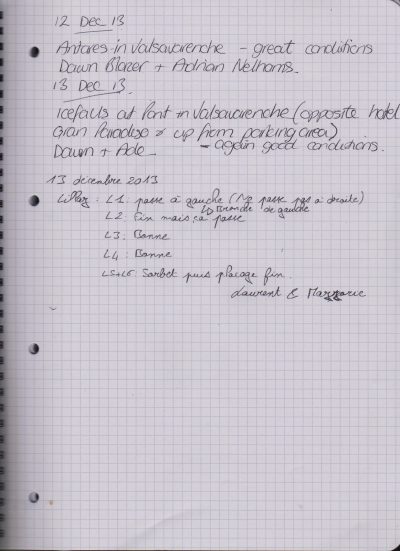 12 Dec 13
Antares in Valsavarenche - great conditions
Dawn Blazer + Adrian Nelhams.
13 Dec 13
Icefalls at Pont in Valsavarenche (opposite hotel
Gran Paradiso & up from parking area)
Dawn + Ade - again good conditions.
13 décembre 2013
Lillaz : L1 : passe à gauche (Ne passe pas à droite)
↳ Branche de gauche
L2 fin mais ça passe
L3 : Bonne
L4 : Bonne
L5+L6 : Sorbet puis placage fin.
Laurent &